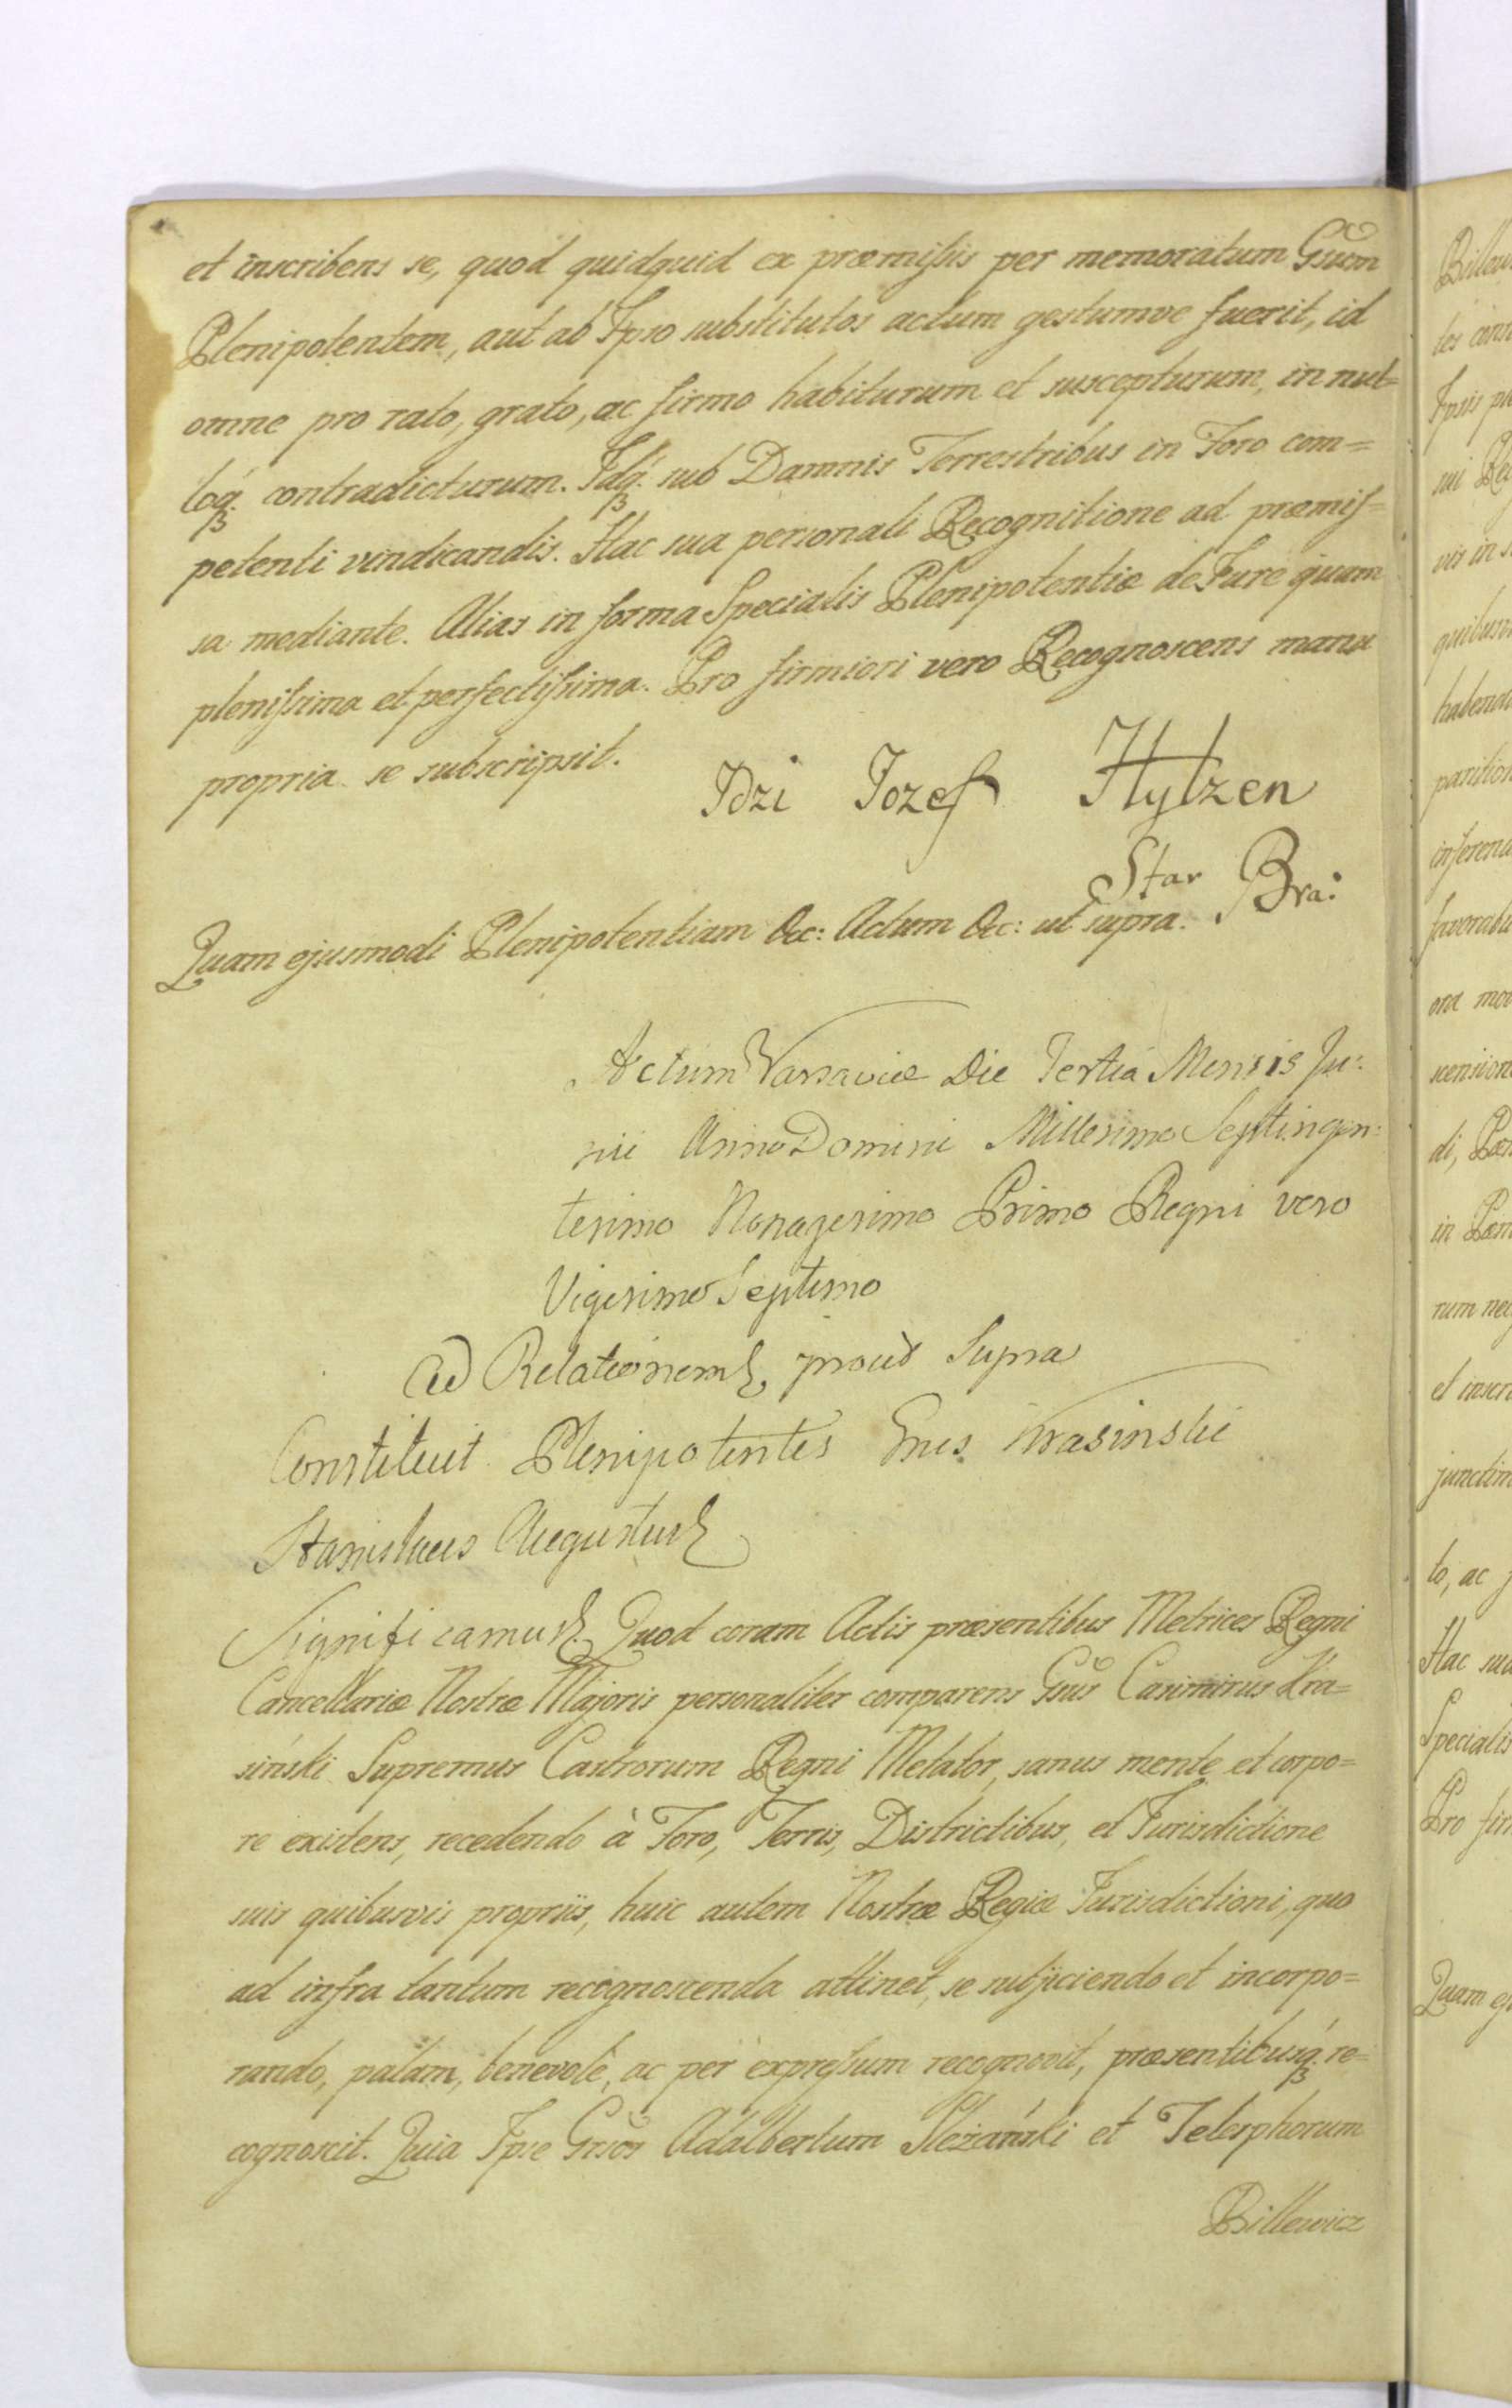 et inscribens se, quod quidquid ex præmissis per memoratum Gñum
Plenipotentem, aut ab Ipso substitutos actum gestumve fuerit, id
omne pro rato, grato, ac firmo habiturum et suscepturum, in nul=
loq; contradicturum. Idq; sub Damnis Terrestribus in Foro com=
petenti vindicandis. Hac sua personali Recognitione ad præmis=
sa mediante. Alias in forma Specialis Plenipotentiæ de Jure quam
plenissima et perfectissima. Pro firmiori vero Recognoscens manu
propria se subscripsit.
Idzi Jozef Hylzen
Star Bra:
Quam ejusmodi Plenipotentiam &c: Actum &c: ut supra.
Actum Varsaviæ Die Tertia Mensis Ju:
nii Anno Domini Millesimo Septingen:
tesimo Nonagesimo Primo Regni vero
Vigesimo Septimo
Ad Relationem prout Supra
Constituit Plenipotentes Gnus Krasinski
Stanislaus Augustus
Significamus Quod coram Actis præsentibus Metrices Regni
Cancellariæ Nostræ Majoris personaliter comparens Gñus Casimirus Kra=
siński Supremus Castrorum Regni Metator, sanus mente et corpo=
re existens, recedendo à Foro, Terris, Districtibus, et Jurisdictione
suis quibusvis propriis, huic autem Nostræ Regiæ Jurisdictioni, quo
ad infra tantum recognoscenda attinet, se subjiciendo et incorpo=
rando, palam, benevole, ac per expressum recognovit, præsentibusq; re=
cognoscit. Quia Ipse Gñōs Adalbertum Sleżański et Telesphorum
Billewicz